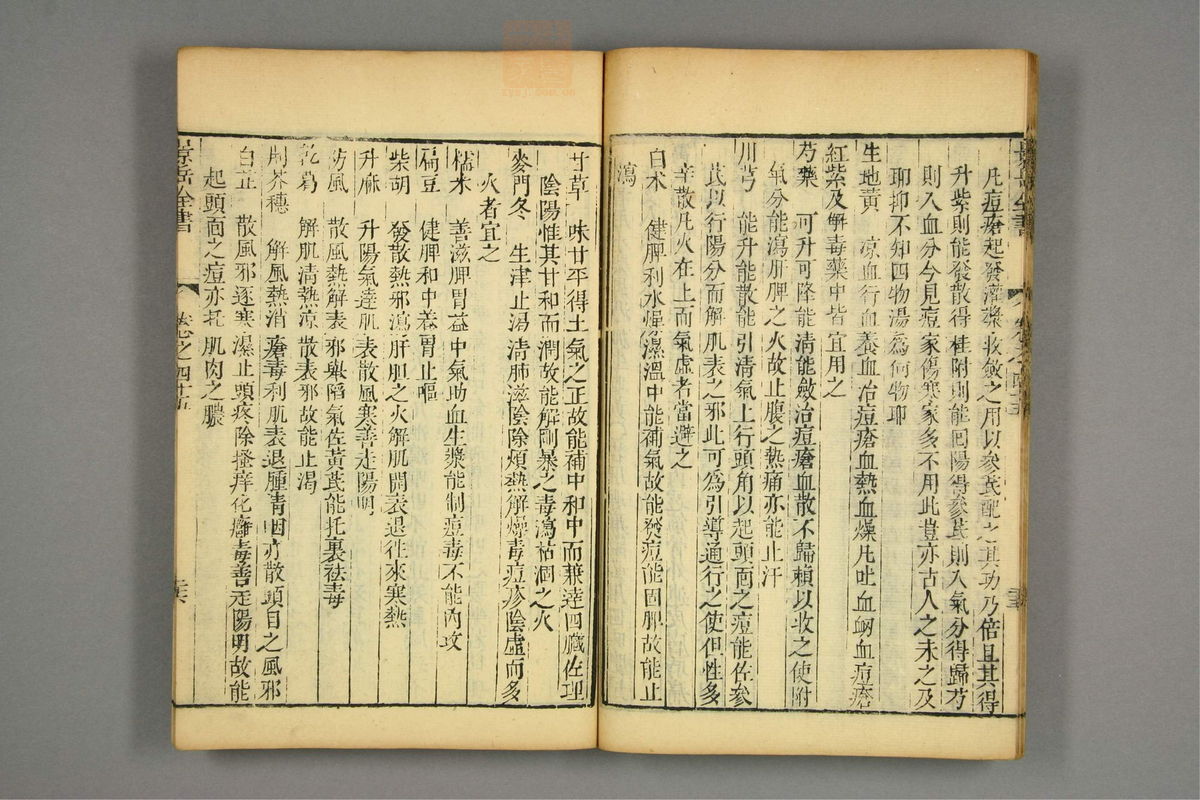 凡痘瘡起發灌漿收斂之用以參芪配之其功乃倍且其得
升柴則能發散得桂附則能回陽得參芪則入氣分得歸芍
則入血分今見痘家傷寒家多不用此豈亦古人之未之及
耶抑不知四物湯為何物耶
生地黃 凉血行血養血治痘瘡血熱血燥凡吐血衂血痘瘡
紅紫及解毒藥中皆宜用之
芍藥 可升可降能清能斂治痘瘡血散不歸賴以收之使附
氣分能瀉肝脾之火故止腹之熱痛亦能止汗
川芎 能升能散能引清氣上行頭角以起頭面之痘能佐參
芪以行陽分而解肌表之邪此可為引導通行之使但性多
辛散凡火在上而氣虛者當避之
白术 健脾利水燥濕溫中能補氣故能發痘能固脾故能止
瀉
甘草 味甘平得土氣之正故能補中和中而兼達四臟佐理
陰陽惟其甘和而潤故能解剛暴之毒瀉枯涸之火
麥門冬 生津止渴清肺滋陰除煩熱解燥毒痘疹陰虛而多
火者宜之
糯米 善滋脾胃益中氣助血生漿能制痘毒不能內攻
扁豆 健脾和中養胃止嘔
柴胡 發散熱邪瀉肝胆之火解肌開表退徃來寒熱
升麻 升陽氣達肌表散風寒善走陽明
防風 散風熱解表邪舉陷氣佐黃芪能托裏祛毒
乾葛 解肌清熱凉散表邪故能止渴
荊芥穗 解風熱消瘡毒利肌表退腫清咽亦散頭目之風邪
白芷 散風邪逐寒濕止頭疼除搔痒化癰毒善走陽明故能
起頭面之痘亦托肌肉之膿
景岳全書
卷之四十五